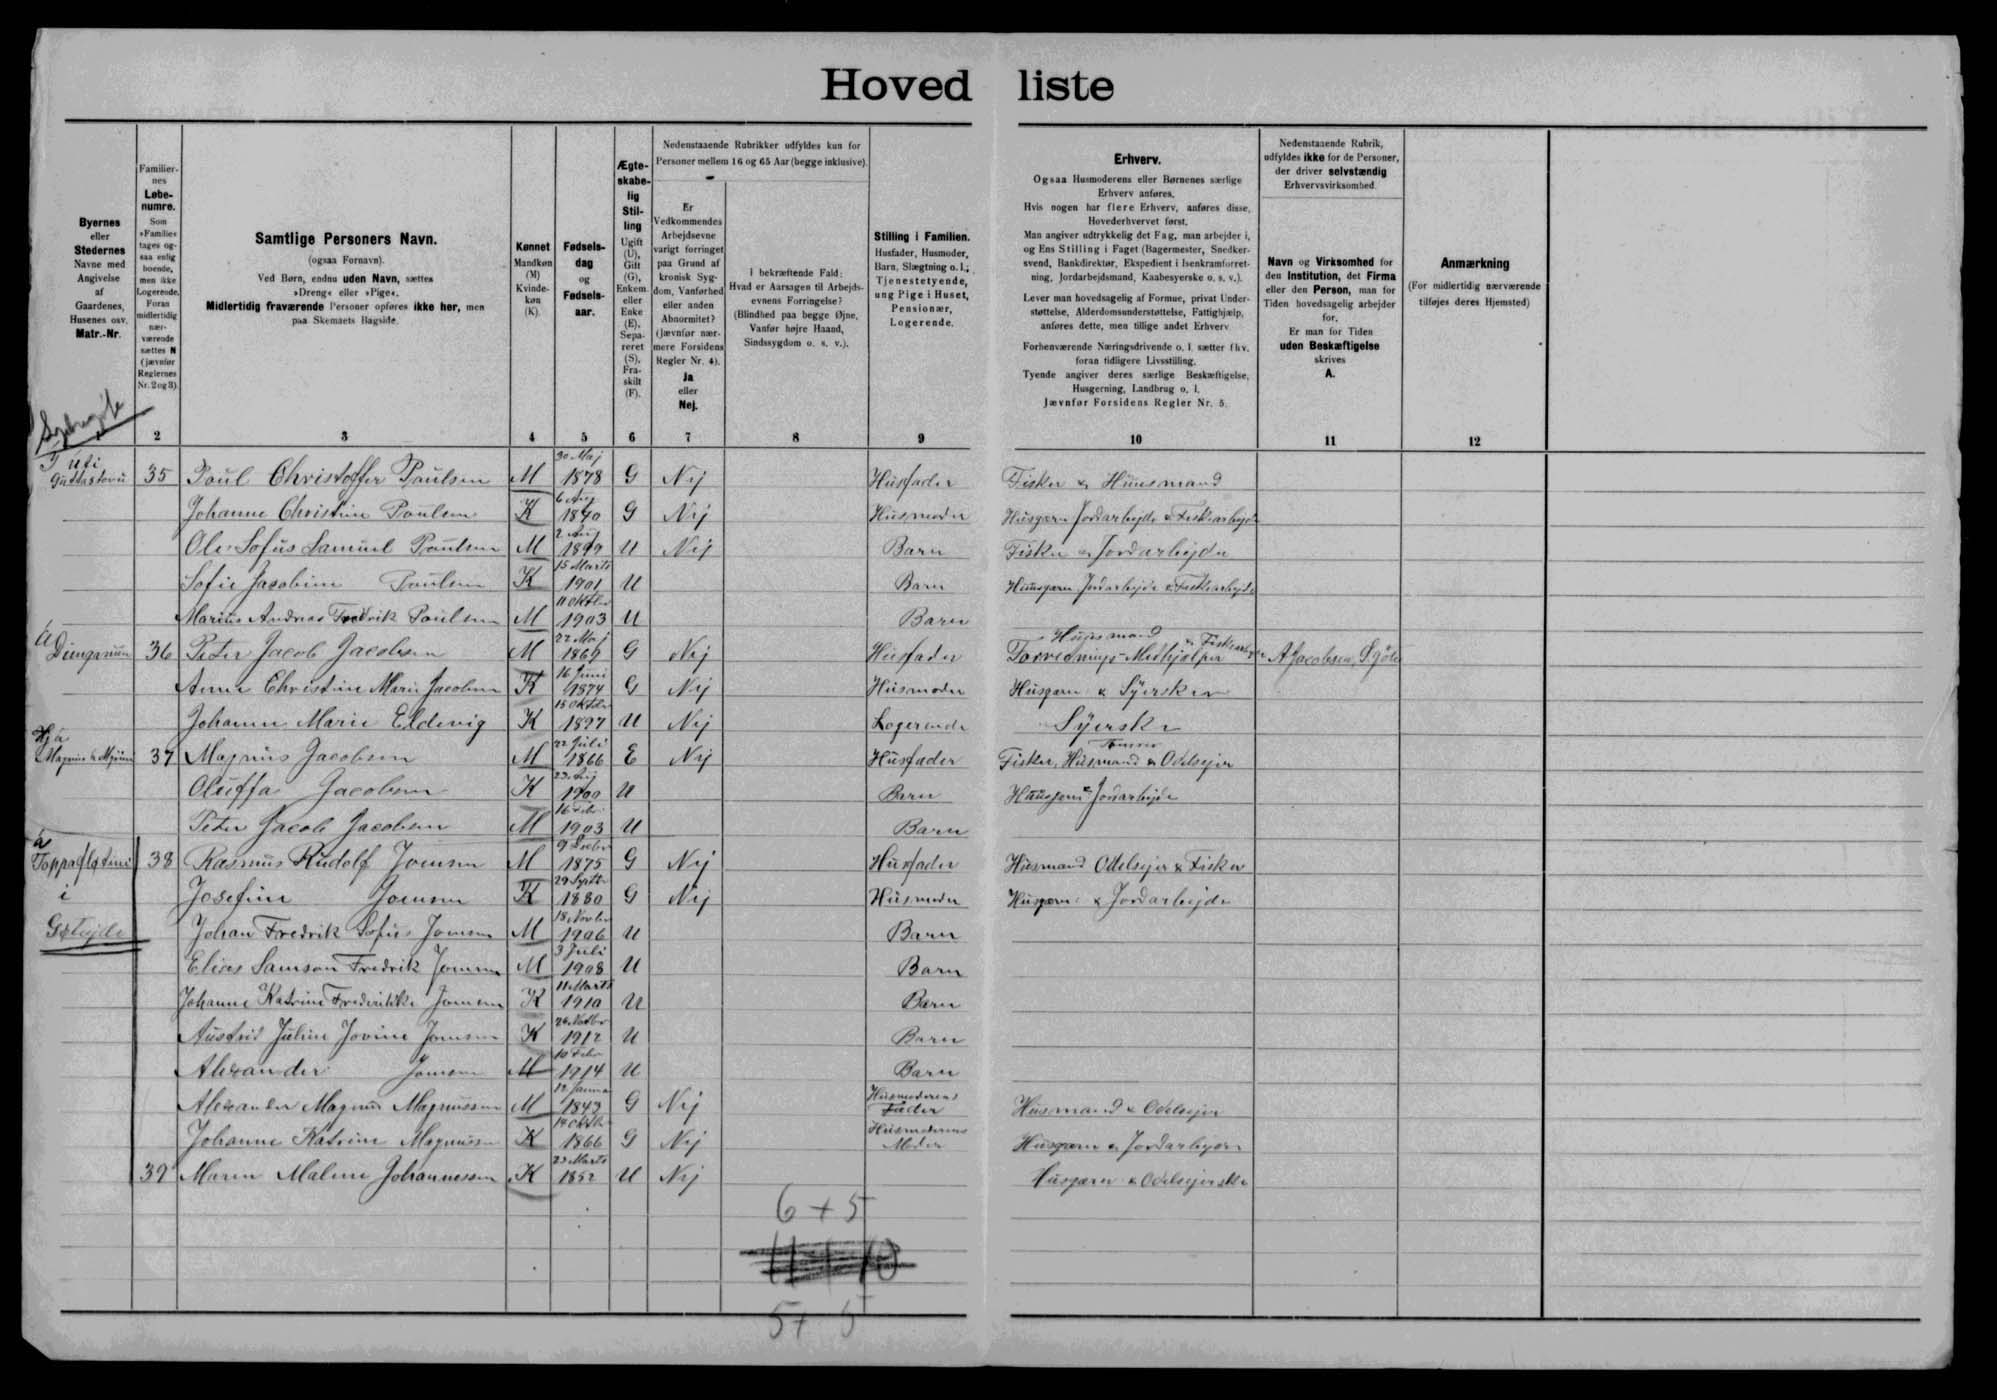 Hovedliste
Byernes
eller
Stedernes
Navne med
Angivelse
af
Gaardenes,
Husenes osv.
Matr.-Nr.
Familier-
nes
Løbe-
numre.
Som
»Familie«
tages og-
saa enlig
boende,
men ikke
Logerende.
Foran
midlertidig
nær-
værende
sættes N
(jævnfør
Reglernes
Nr. 2 og 3).
Samtlige Personers Navn.
(ogsaa Fornavn).
Ved Børn, endnu uden Navn, sættes
»Dreng« eller »Pige«.
Midlertidig fraværende Personer opføres ikke her, men
paa Skemaets Bagside.
Kønnet
Mandkøn
(M)
Kvinde-
køn
(K).
Fødsels-
dag
og
Fødsels-
aar.
Ægte-
skabe-
lig
Stil-
ling
Ugift
(U),
Gift
(G),
Enkem.
eller
Enke
(E),
Sepa-
reret
(S),
Fra-
skilt
(F).
Nedenstaaende Rubrikker udfyldes kun for
Personer mellem 16 og 65 Aar (begge inklusive).
Er
Vedkommendes
Arbejdsevne
varigt forringet
paa Grund af
kronisk Syg-
dom, Vanførhed
eller anden
Abnormitet?
(Jævnfør nær-
mere Forsidens
Regler Nr. 4).
Ja
eller
Nej.
I bekræftende Fald:
Hvad er Aarsagen til Arbejds-
evnens Forringelse?
(Blindhed paa begge Øjne,
Vanfør højre Haand,
Sindssygdom o. s. v.).
Stilling i Familien.
Husfader, Husmoder,
Barn, Slægtning o. l.;
Tjenestetyende,
ung Pige i Huset,
Pensionær,
Logerende.
Erhverv.
Ogsaa Husmoderens eller Børnenes særlige
Erhverv anføres.
Hvis nogen har flere Erhverv, anføres disse,
Hovederhvervet først.
Man angiver udtrykkelig det Fag, man arbejder i,
og Ens Stilling i Faget (Bagermester, Snedker-
svend, Bankdirektør, Ekspedient i Isenkramforret-
ning, Jordarbejdsmand, Kaabesyerske o. s. v.).
Lever man hovedsagelig af Formue, privat Under-
støttelse, Alderdomsunderstøttelse, Fattighjælp,
anføres dette, men tillige andet Erhverv
Forhenværende Næringsdrivende o. l. sætter fhv.
foran tidligere Livsstilling.
Tyende angiver deres særlige Beskæftigelse,
Husgerning, Landbrug o. l.
Jævnfør Forsidens Regler Nr. 5.
Nedenstaaende Rubrik,
udfyldes ikke for de Personer,
der driver selvstændig
Erhvervsvirksomhed
Navn og Virksomhed for
den Institution, det Firma
eller den Person, man for
Tiden hovedsagelig arbejder
for.
Er man for Tiden
uden Beskæftigelse
skrives
A.
Anmærkning
(For midlertidig nærværende
tilføjes deres Hjemsted)
2 3 4 5 6 7 8 9 10 11 12
35 Poul Christoffer Poulsen M 30 Maj 1878 G Nej Husfader Fisker & Husmand
Johanne Christine Poulsen K 6 Aug G Nej Husmoder Husgærn Jordarbejde & Fiskearbejde
Ole Sofus Samuel Poulsen M 2 Aug 1899 U Nej Barn Fisker & Jordarbejde
Sofie Jacobine Poulsen K 15 Marts 1901 U Barn Husgærn Jordarbejde & Fiskearbejde
Marius Andreas Fredrik Poulsen M 11 Oktbr 1903 U Barn
36 Peter Jacob Jacobsen M 22 Maj 1869 G Nej Husfader Husmand Forretnings-Medhjælper & A Jacobsen
Anne Christine Marie Jacobsen K 16 Juni 1874 G Nej Husmoder Husgærn & Syerske
Johanne Marie Eldevig K 15 Oktbr 1897 U Nej Logerende Syerske
37 Magnus Jacobsen M 22 Juli 1866 E Nej Husfader Fisker, Husmand & Odelsejer
Oluffa Jacobsen K 23 Aug 1900 U Barn Husgærn & Jordarbejde
Peter Jacob Jacobsen M 16 Febr 1903 U Barn
á Toppaflatini 38 Rasmus Rudolf Joensen M 9 1875 G Nej Husfader Husmand Odelsejer & Fisker
i Josefine Joensen K 29 Septbr 1880 G Nej Husmoder Husgærn & Jordarbejde
Gøtejde Johan Fredrik Sofus Joensen M 18 Novbr 1906 U Barn
Elias Samson Fredrik Joensen M 3 Juli 1908 U Barn
Johanne Katrine Frederikke Joensen K 11 Marts 1910 U Barn
Austrid Juline Jovine Joensen K 1912 U Barn
Alexander Joensen M 10 Febr 1914 U Barn
Alexander Magnus Magnussen M 12 Januar 1843 G Nej Husmoderens Fader Husmand & Odelsejer
Johanne Katrine Magnussen K 14 Oktbr 1866 G Nej Husmoderens Moder Husgærn & Jordarbejde
39 Maren Malene Johannessen K 23 Marts 1852 U Nej Husgærn & Odelsejerske
6 + 5
5 + 5